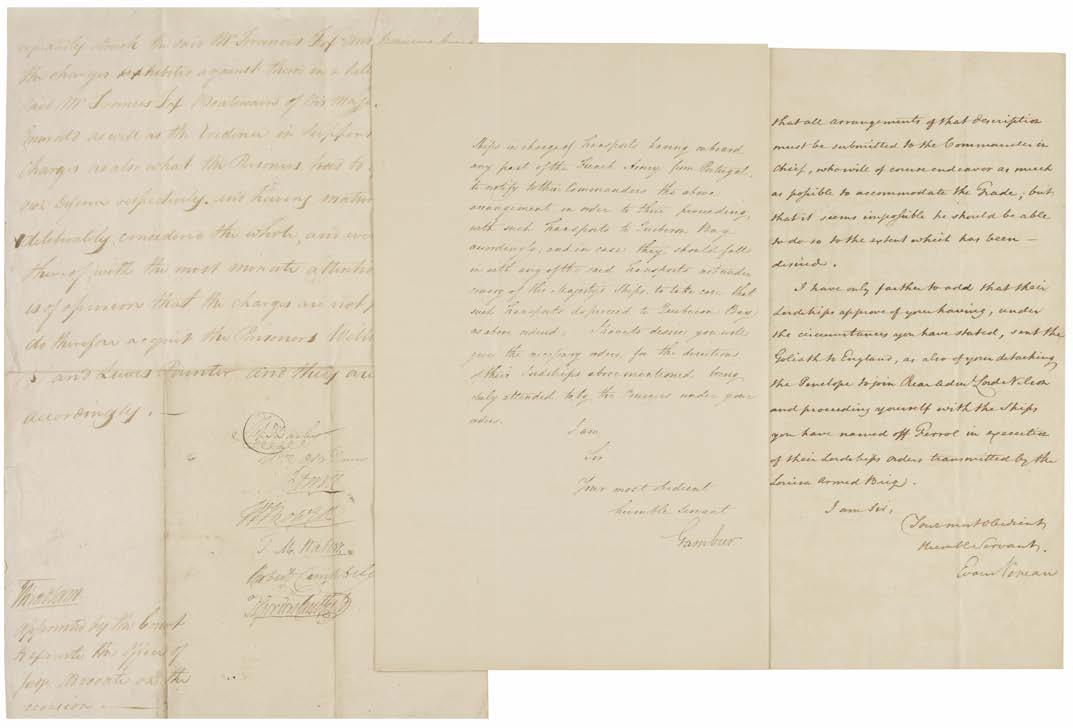 the said Mr Frances
the charges exhibited against them in a
said Mr Frances Boatswain of His
as well as the Evidence in Support
Charges as also what the Prisoners had to
own Defence respectively. and having
deliberately considered the whole, and
thereof with the most minute attention
is of opinion that the charges are not
do therefore acquit the Prisoners
and Lewis Pointer and they are
accordingly.
Robert Campbell
appointed by the Court
to execute the Office of
Judge Advocate on the
occasion
Ships in charge of Transports having onboard
any part of the French Army from Portugal,
to notify to their Commanders the above
arrangement in order to their proceeding
with such Transports to Quiberon Bay
accordingly, and in case they should fall
in with any of the said Transports not under
convoy of His Majestys Ships, to take care that
such Transports do proceed to Quiberon Bay
as above ordered; I have to desire you will
give the necessary orders, for the directions
of their Lordships abovementioned being
duly attended to by the Cruizers under your
orders.
I am
Sir
Your most obedient
humble Servant
Gambier
that all arrangements of that description
must be submitted to the Commander in
Chief, who will of course endeavor as much
as possible to accommodate the Trade; but
that it seems impossible he should be able
to do so to the extent which has been —
desired.
I have only farther to add that their
Lordships approve of your having, under
the circumstances you have stated, sent the
Goliath to England, as also of your detaching
the Penelope to join Rear Adml Lord Nelson
and proceeding yourself with the Ships
you have named off Ferrol in execution
of their Lordships orders transmitted by the
Louisa Armed Brig.
I am Sir,
Your most Obedient
Humble Servant.
Evan Nepean